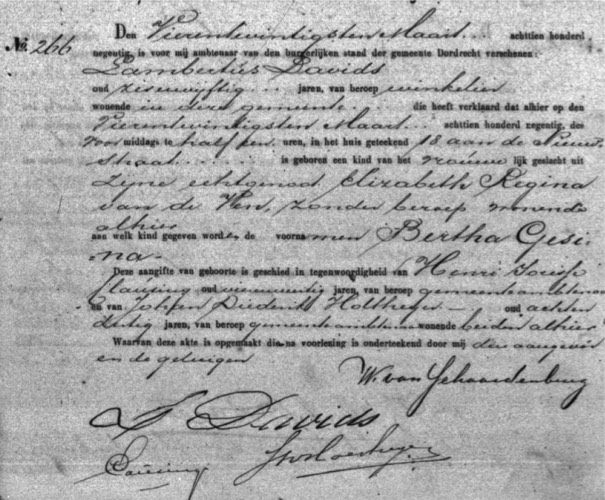 No. 266
Den Vierentwintigsten Maart achttien honderd
negentig, is voor mij ambtenaar van den burgerlijken stand der gemeente Dordrecht verschenen:
Lambertus Davids
oud zesenvijftig jaren, van beroep winkelier
wonende in deze gemeente die heeft verklaard dat alhier op den
Vierentwintigsten Maart achttien honderd negentig, des
voor middags te half tien uren, in het huis geteekend 18 aan de Nieuw-
straat is geboren een kind van het vrouwe lijk geslacht uit
zijne echtgenoot Elizabeth Regina
van de Ven, zonder beroep wonende
alhier
aan welk kind gegeven worden de voornamen Bertha Gesi-
na.
Deze aangifte van geboorte is geschied in tegenwoordigheid van Henri
oud jaren, van beroep gemeenteambtenaar
en van Johan Diederik oud achten
dertig jaren, van beroep gemeenteambtenaar wonende beiden alhier
Waarvan deze akte is opgemaakt die na voorlezing is onderteekend door mij den aangever
en de getuigen
W. van
L Davids